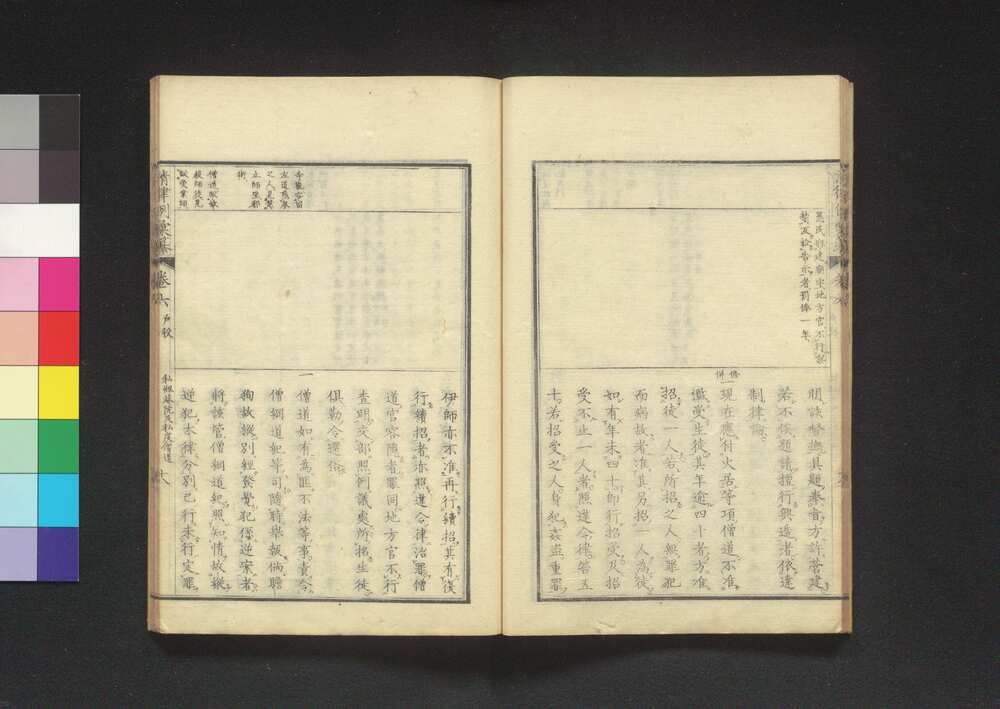 愚民擅建廟宇地方官不行
禁止
告示者罰俸一年
修併
明該督撫具題奉旨方許營建
若不俟題請擅行興造者依違
制律論
一現在應付火居等項僧道不准
濫受生徒其年逾四十者方准
招徒一人若所招之人無罪犯
而病故者准其另招一人為徒
如有年未四十即行招受及招
受不止一人者照違令律笞五
十若招受之人身犯姦盜重罪
寺觀容留
之人
僧道
清律例彙纂
卷六
戶役
私刱菴院及私度僧道
十八
伊師亦不准再行續招其有復
行續招者亦照違令律治罪僧
道官容隱者罪同地方官不行
查明交部照例議處所招生徒
俱勒令還俗
一僧道如有為匪不法等事責令
僧綱道紀等司隨時舉報倘瞻
狥故縱別經發覺犯係逆案者
將該管僧綱道紀照知情故縱
逆犯本律分別已行未行定罪